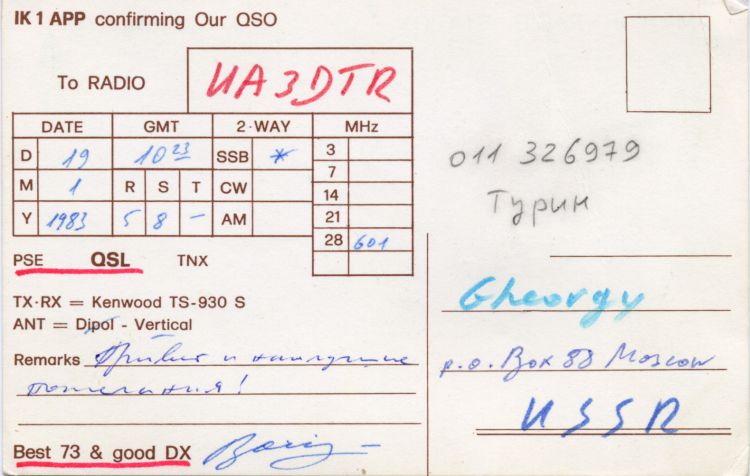 IK 1 APP confirming Our QSO
To RADIO UA3DTR
DATE GMT 2-WAY MHz
D 19 10 23 SSB * 3
7
M 1 R S T CW 14
Y 1983 5 8 - AM 21
28 601
PSE QSL TNX
TX-RX = Kenwood TS-930 S
ANT = Dipol - Vertical
Remarks Привет и наилучшие
пожелания!
Best 73 & good DX Boris
011 326979
Турин
Gheorgy
p.o. Box 88 Moscow
USSR